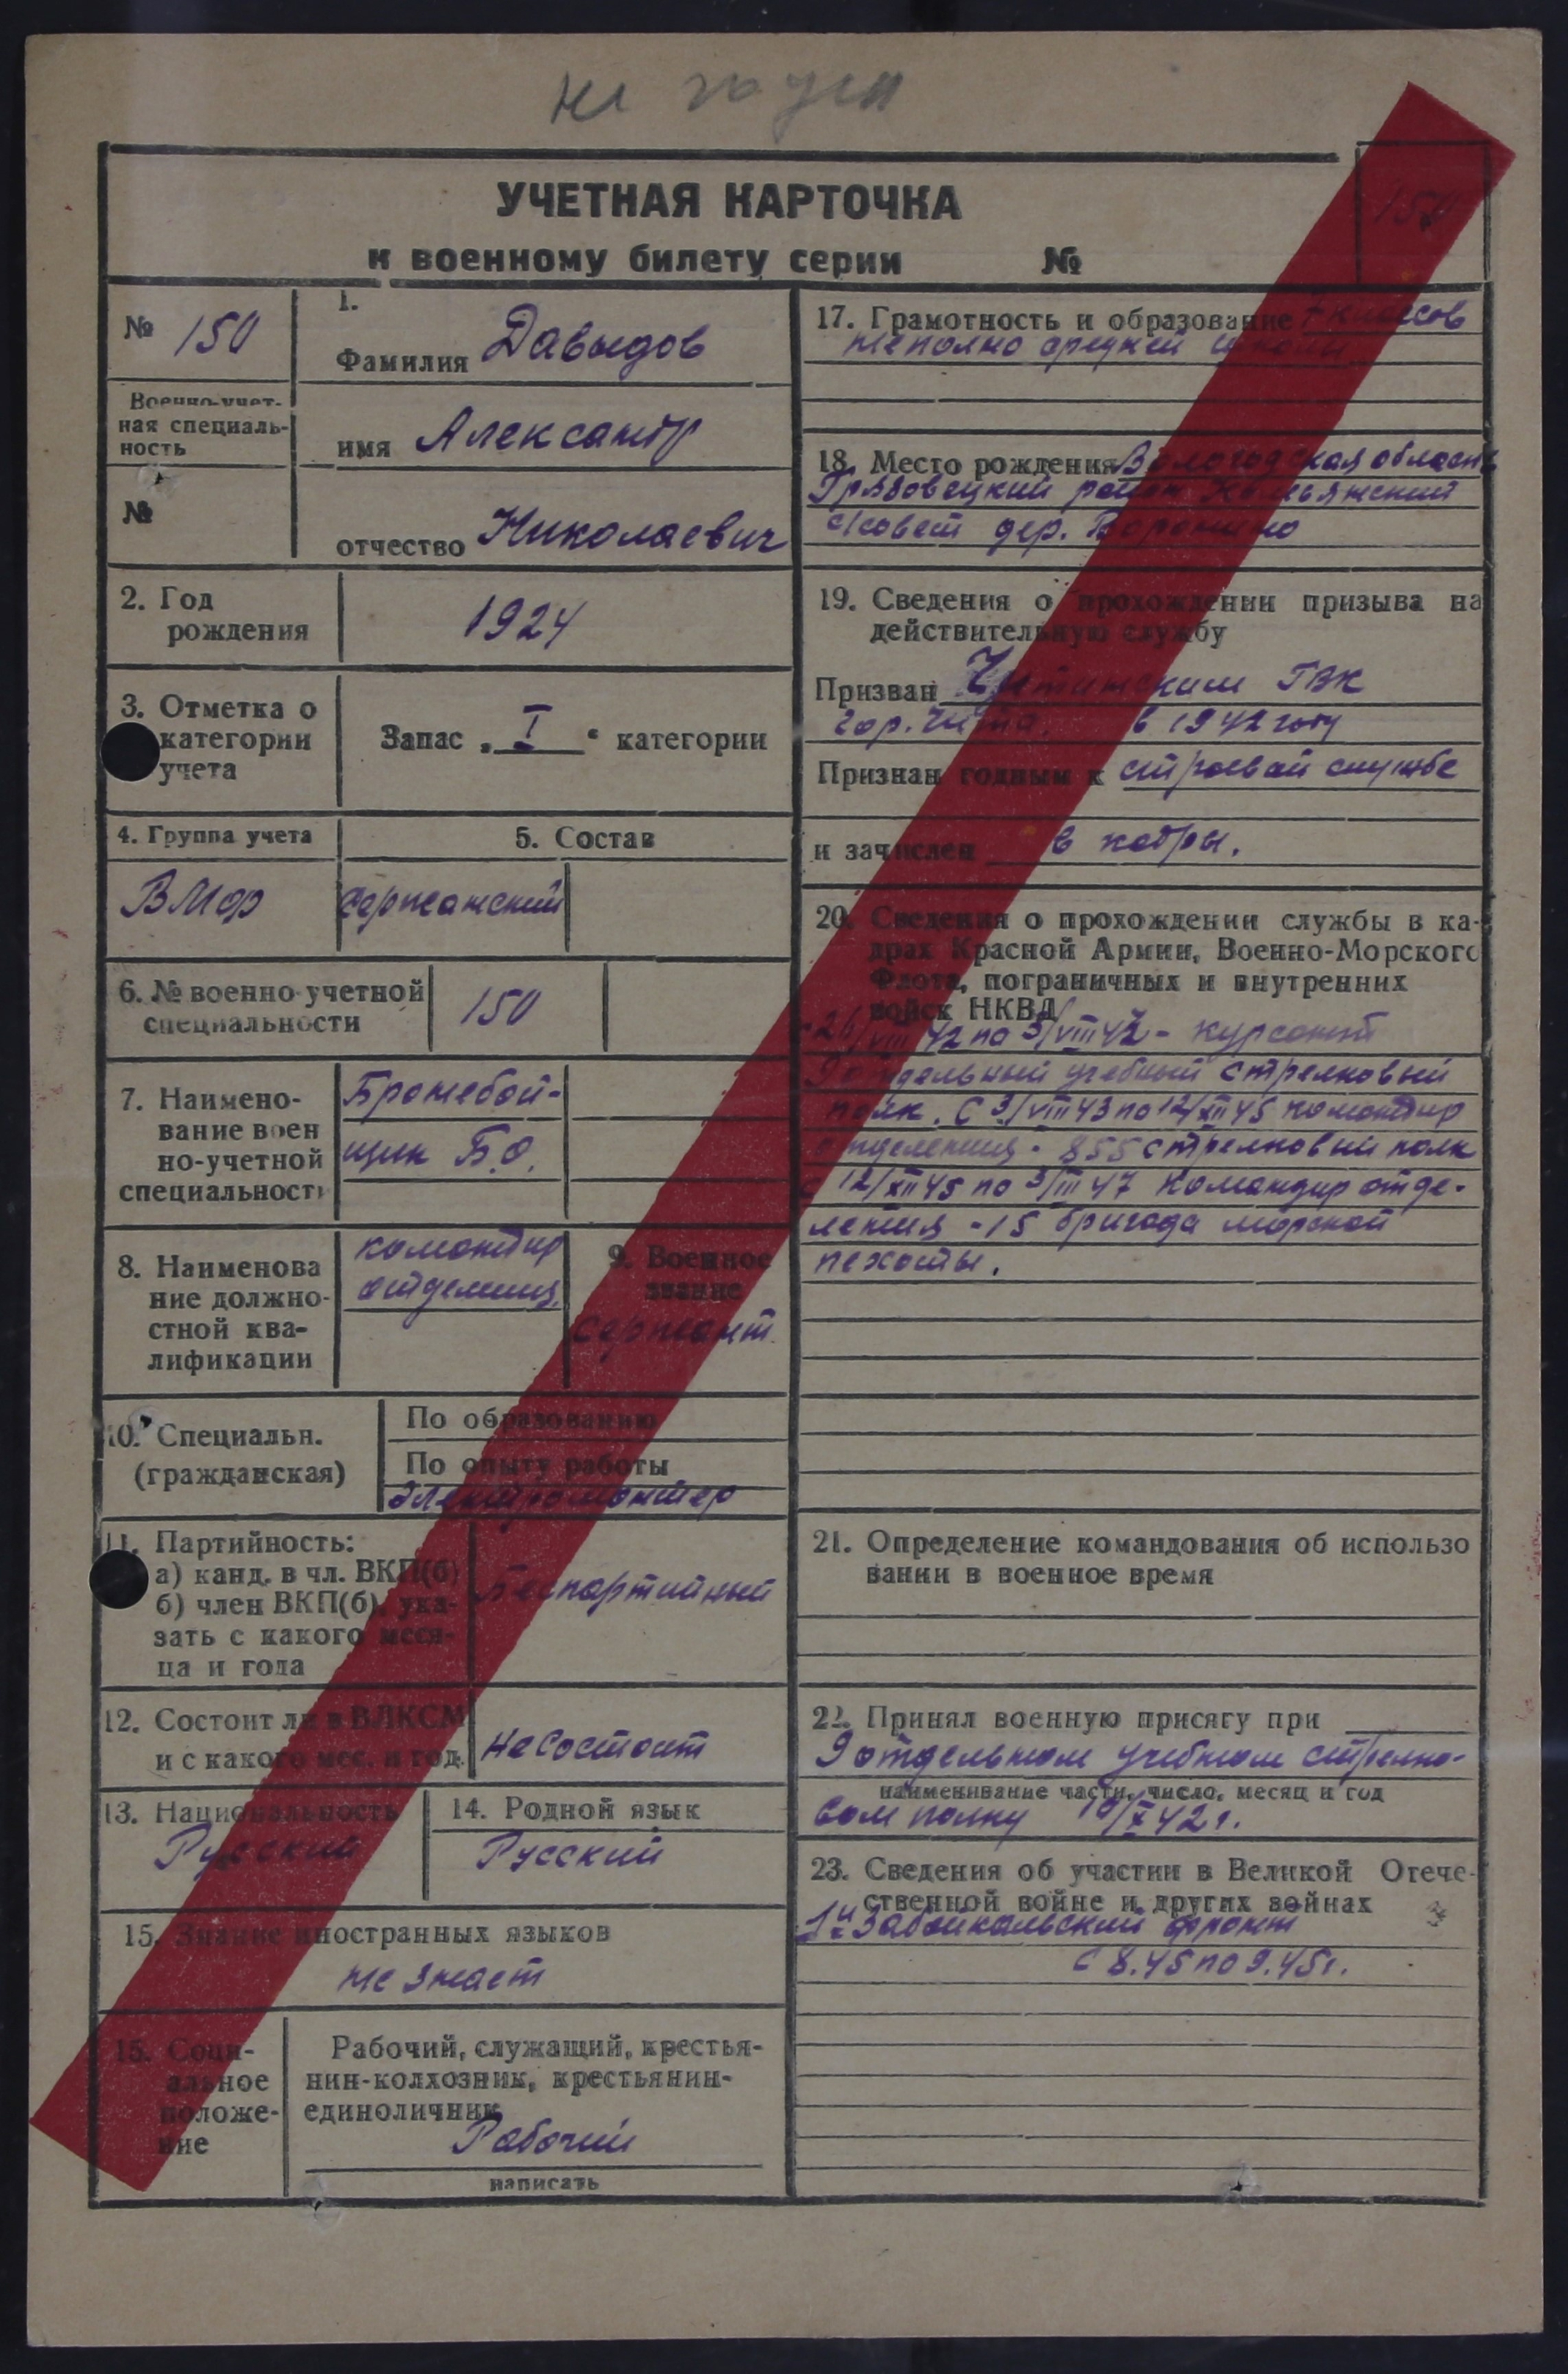 не годен
УЧЕТНАЯ КАРТОЧКА
к военному билету серии №
150
№ 150
Военно-учет-
ная специаль-
ность
№
1.
Фамилия Давыдов
имя Александр
отчество Николаевич
2. Год
рождения
1924
3. Отметка о
категории
учета
Запас „ I “ категории
4. Группа учета
5. Состав
ВМФ
сержанский
6. № военно-учетной
специальности
150
7. Наимено-
вание воен
но-учетной
специальності
Бронебой-
щик Б.О.
8. Наименова
ние должно-
стной ква-
лификации
командир
отделения
9. Военное
звание
сержант
10. Специальн.
(гражданская)
По образованию
По опыту работы
электромонтер
11. Партийность:
а) канд. в чл. ВКП(б)
б) член ВКП(б), ука-
зать с какого меся-
ца и года
Беспартийный
12. Состоит ли в ВЛКСМ
и с какого мес. и год.
не состоит
13. Национальность
Русский
14. Родной язык
Русский
15. Знание иностранных языков
не знает
15. Соци-
альное
положе-
ние
Рабочий, служащий, крестья-
нин-колхозник, крестьянин-
единоличник
Рабочий
написать
17. Грамотность и образование 7 классов
неполно средней школы
18. Место рождения Вологодская область
Грязовецкий район
с/совет дер.
19. Сведения о прохождении призыва на
действительную службу
Призван Читинским ГВК
гор. Чита. в 1942 году
Признан годным к строевой службе
и зачислен в кадры.
20. Сведения о прохождении службы в ка-
драх Красной Армии, Военно-Морского
Флота, пограничных и внутренних
войск НКВД
26/VIII 42 по 3/VIII 42 - курсант
9 отдельный учебный стрелковый
полк. С 3/VIII 43 по 12/XII 45 командир
отделения - 855 стрелковый полк
с 12/XII 45 по 3/III 47 командир отде-
ления - 15 бригада морской
пехоты.
21. Определение командования об использо
вании в военное время
22. Принял военную присягу при
9 отдельном учебном стрелко-
наименивание части, число, месяц и год
вом полку 10/X 42 г.
23. Сведения об участии в Великой Отече-
ственной войне и других войнах
1й Забайкальский фронт
с 8.45 по 9.45 г.